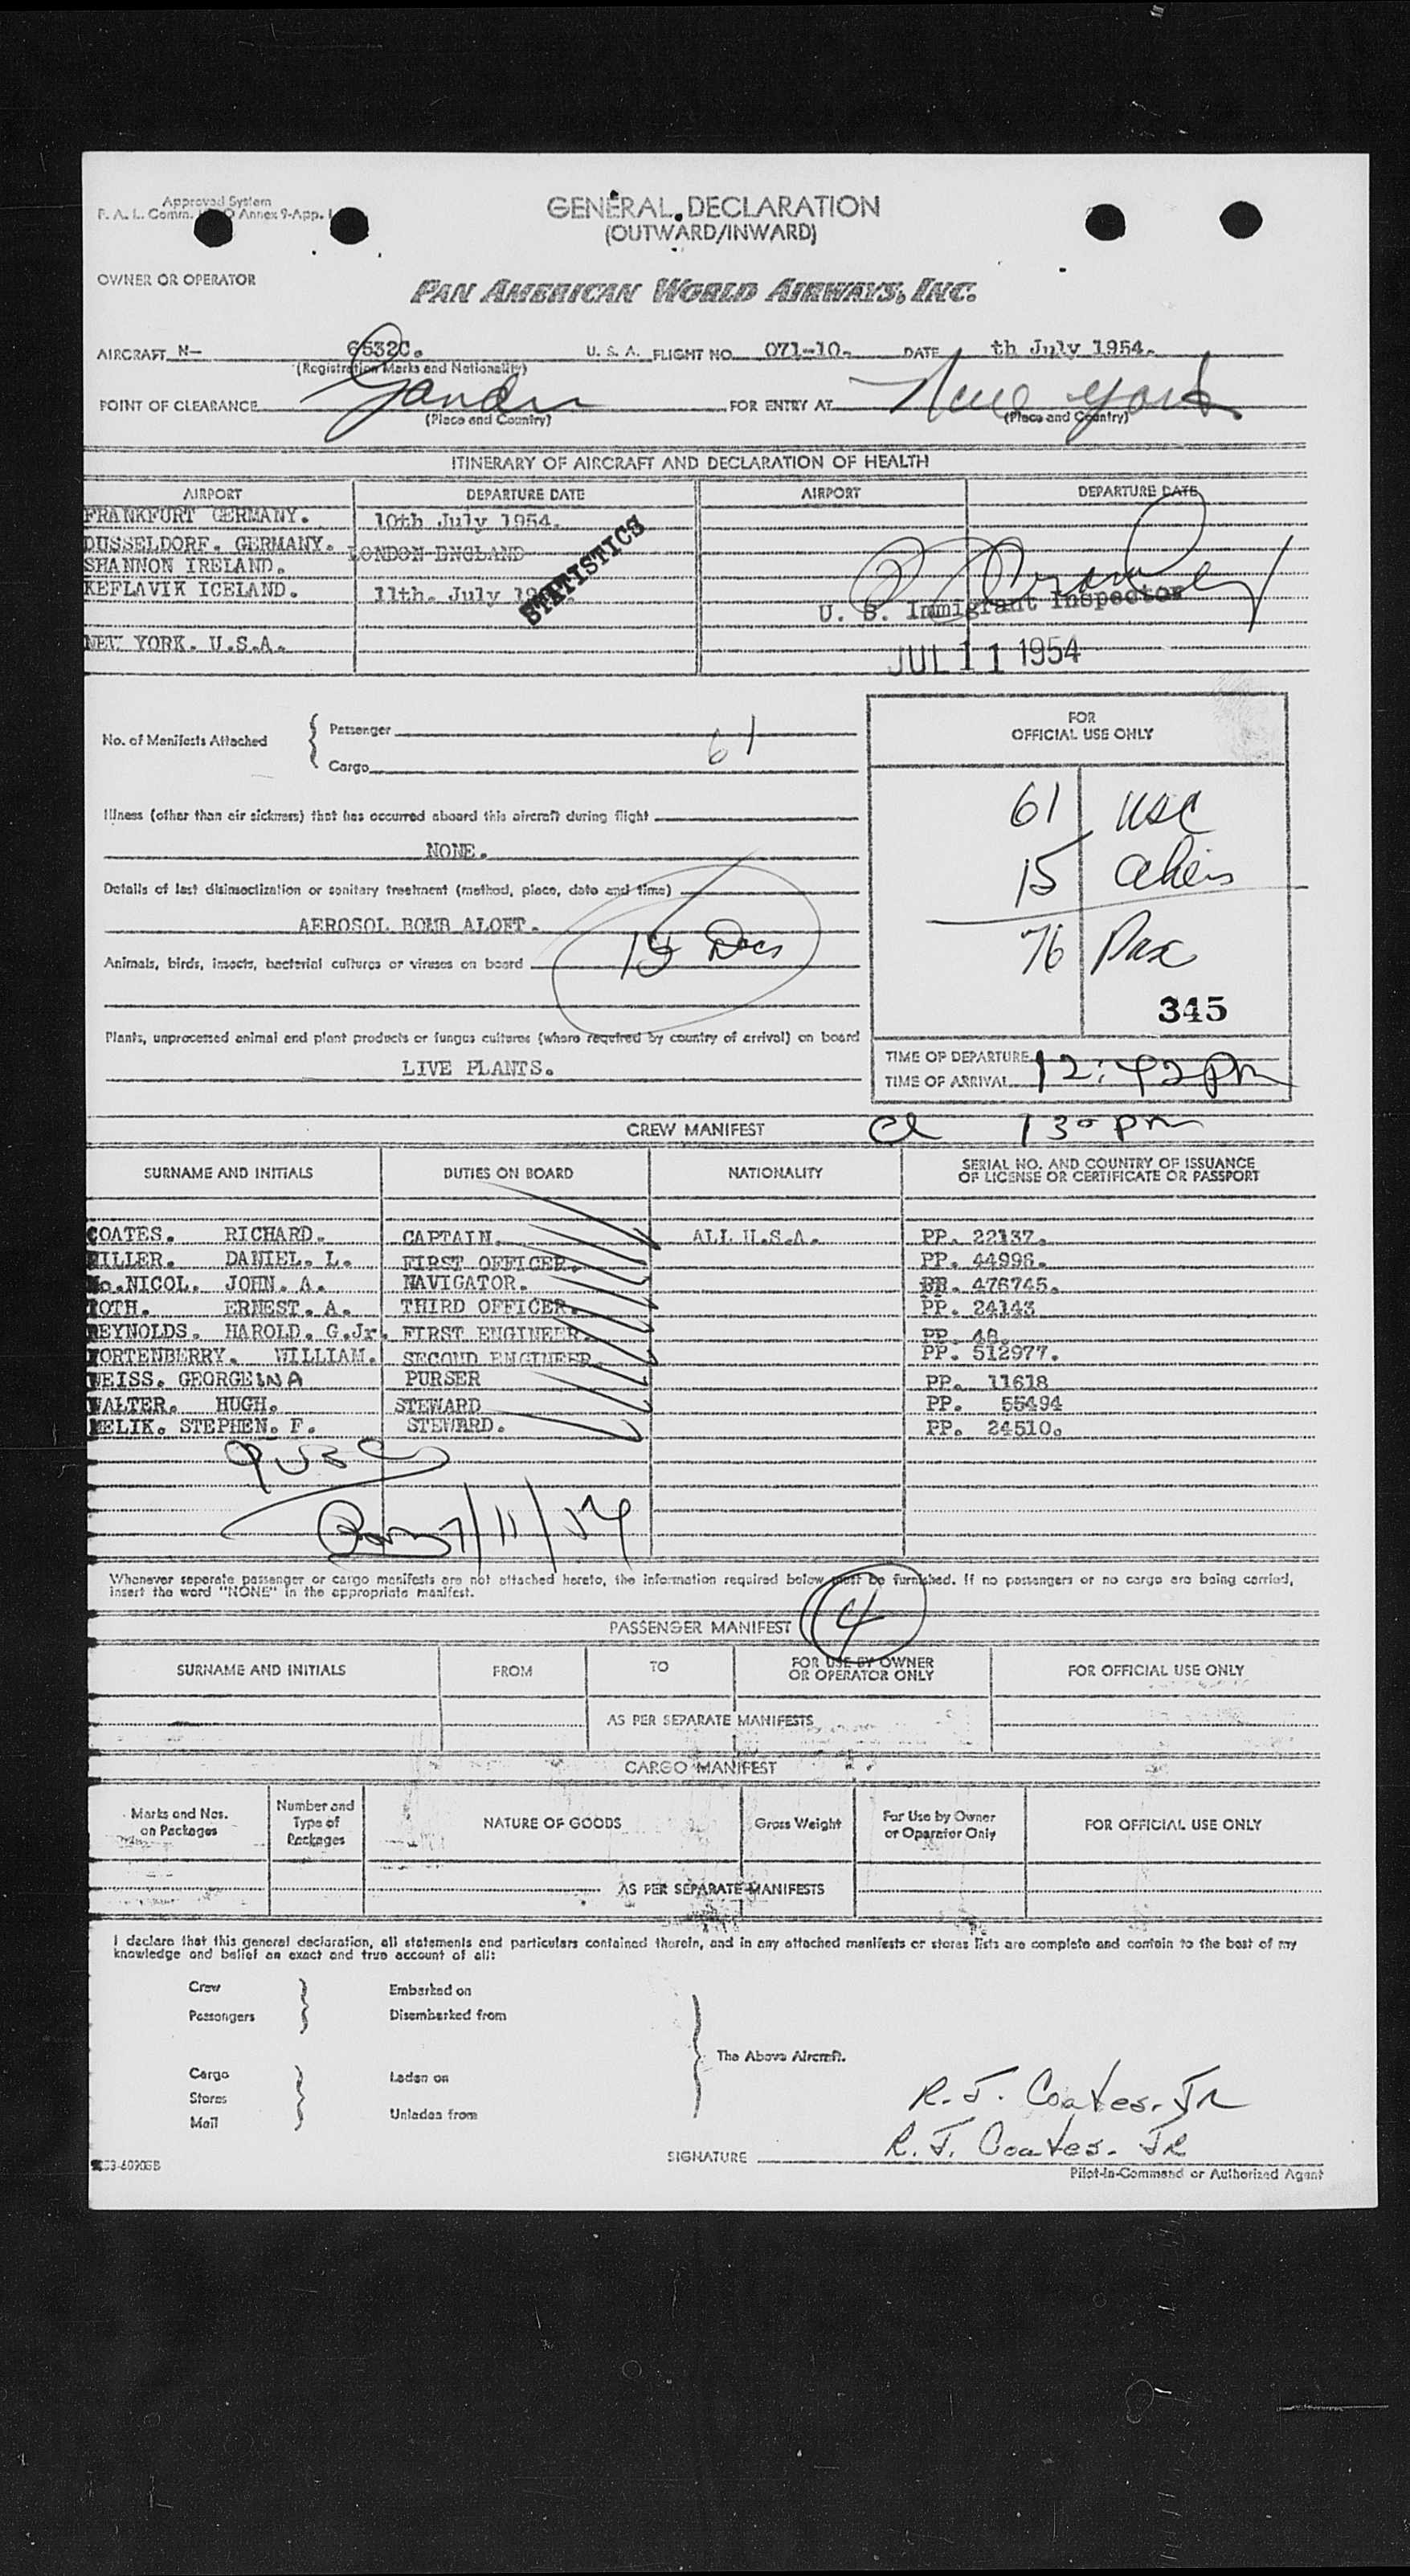 Approved System
F. A. L. Comm. Annex 9-App. 1
GENERAL DECLARATION
(OUTWARD/INWARD)
OWNER OR OPERATOR
PAN AMERICAN WORLD AIRWAYS, INC.
AIRCRAFT N- 6532C. U. S. A. FLIGHT NO. 071-10. DATE th July 1954.
(Registration Marks and Nationality)
POINT OF CLEARANCE Gander FOR ENTRY AT New York
(Place and Country) (Place and Country)
ITINERARY OF AIRCRAFT AND DECLARATION OF HEALTH
AIRPORT DEPARTURE DATE AIRPORT DEPARTURE DATE
FRANKFURT GERMANY. 10th July 1954.
DUSSELDORF. GERMANY. LONDON ENGLAND
SHANNON IRELAND.
KEFLAVIK ICELAND. 11th. July
STATISTICS
U. S. Immigrant Inspector
NEW YORK. U.S.A.
JUL 11 1954
No. of Manifests Attached { Passenger 61
Cargo
FOR
OFFICIAL USE ONLY
61 USC
15 aliens
76 Pax
345
Illness (other than air sickness) that has occurred aboard this aircraft during flight
NONE.
Details of last disinsectization or sanitary treatment (method, place, date and time)
AEROSOL BOMB ALOFT.
15 Docs
Animals, birds, insects, bacterial cultures or viruses on board
Plants, unprocessed animal and plant products or fungus cultures (where required by country of arrival) on board
LIVE PLANTS.
TIME OF DEPARTURE
TIME OF ARRIVAL 12:42 pm
CREW MANIFEST Cl 130 pm
SURNAME AND INITIALS DUTIES ON BOARD NATIONALITY SERIAL NO. AND COUNTRY OF ISSUANCE
OF LICENSE OR CERTIFICATE OR PASSPORT
COATES. RICHARD. CAPTAIN. ALL U.S.A. PP. 22137.
MILLER. DANIEL. L. FIRST OFFICER. PP. 44996.
Mc.NICOL. JOHN. A. NAVIGATOR. PP. 476745.
ROTH. ERNEST. A. THIRD OFFICER. PP. 24143
REYNOLDS. HAROLD. G.Jr. FIRST ENGINEER. PP. 48.
FORTENBERRY. WILLIAM. SECOND ENGINEER. PP. 512977.
WEISS. GEORGEINA PURSER PP. 11618
WALTER. HUGH. STEWARD PP. 55494
MELIK. STEPHEN. F. STEWARD. PP. 24510.
9 USC
7/11/54
Whenever separate passenger or cargo manifests are not attached hereto, the information required below must be furnished. If no passengers or no cargo are being carried,
insert the word "NONE" in the appropriate manifest.
PASSENGER MANIFEST 4
SURNAME AND INITIALS FROM TO FOR USE BY OWNER
OR OPERATOR ONLY FOR OFFICIAL USE ONLY
AS PER SEPARATE MANIFESTS
CARGO MANIFEST
Marks and Nos.
on Packages Number and
Type of
Packages NATURE OF GOODS Gross Weight For Use by Owner
or Operator Only FOR OFFICIAL USE ONLY
AS PER SEPARATE MANIFESTS
I declare that this general declaration, all statements and particulars contained therein, and in any attached manifests or stores lists are complete and contain to the best of my
knowledge and belief an exact and true account of all:
Crew Embarked on
Passengers Disembarked from
The Above Aircraft.
Cargo Laden on
Stores
Mail Unladen from
R. J. Coates. JR
R. J. Coates. JR
SIGNATURE
Pilot-in-Command or Authorized Agent